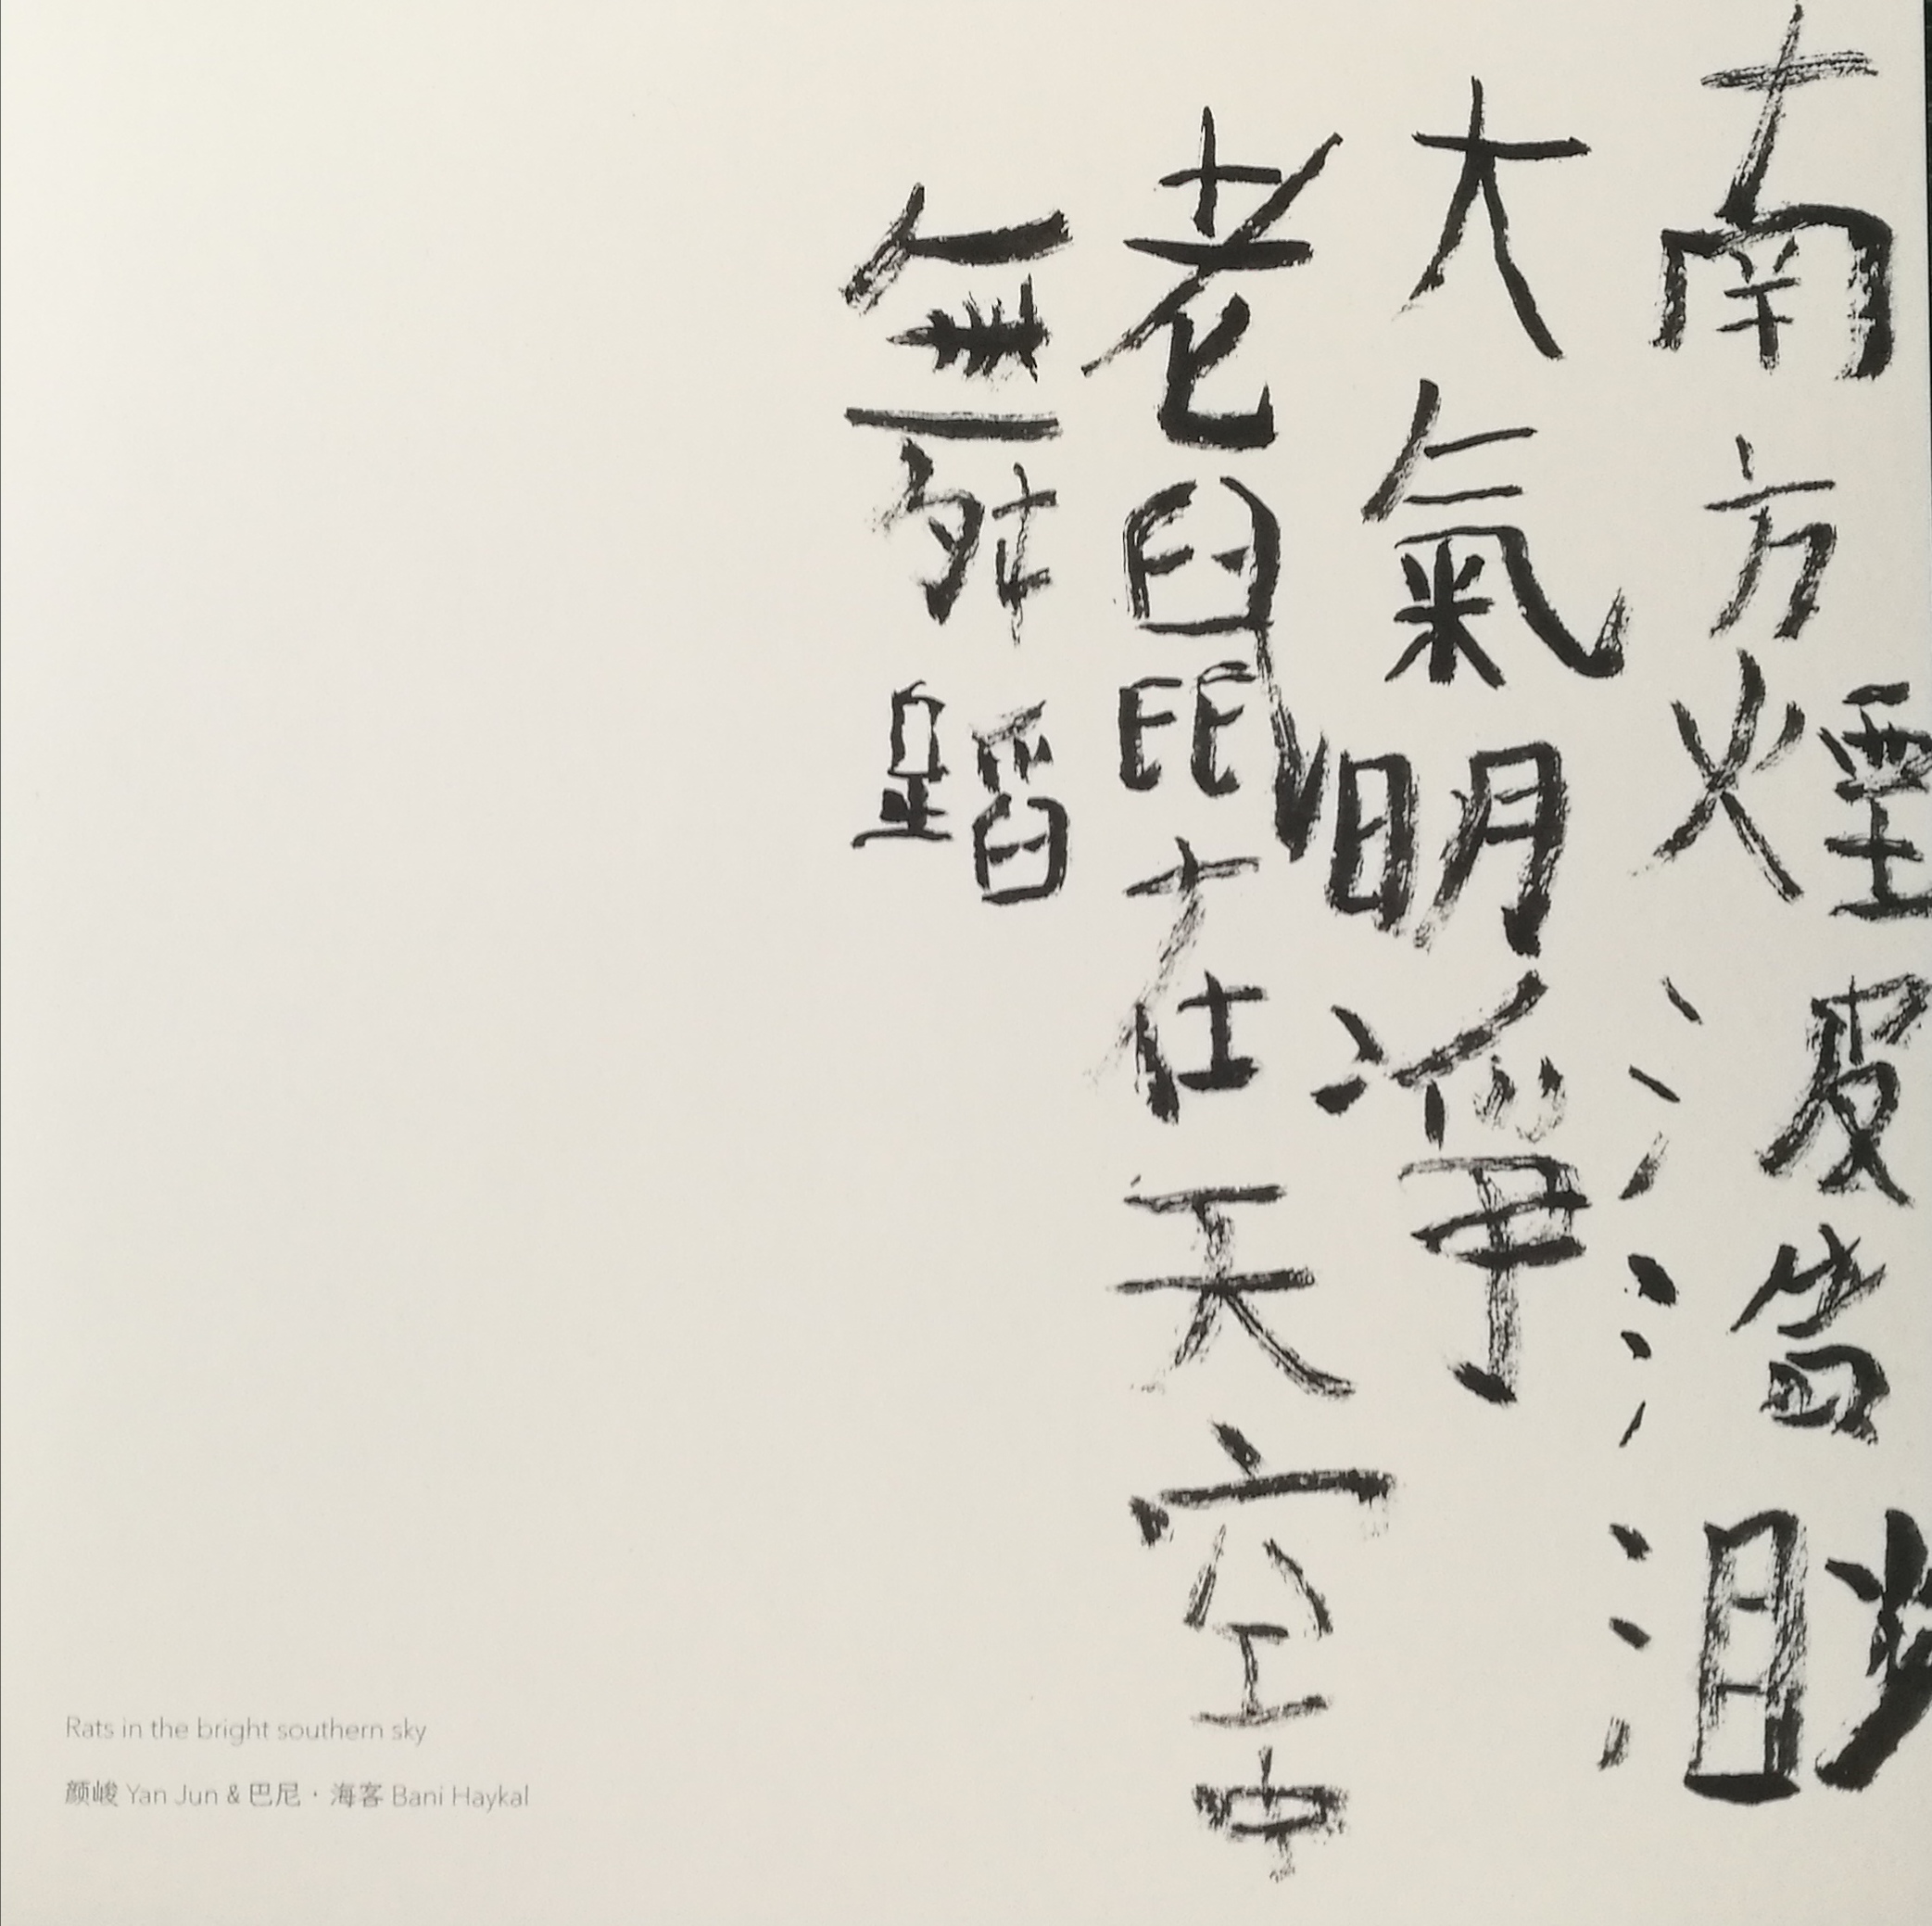 南方煙波浩渺
大氣明淨
老鼠在天空中
舞蹈
Rats in the bright southern sky
颜峻 Yan Jun & 巴尼·海客 Bani Haykal